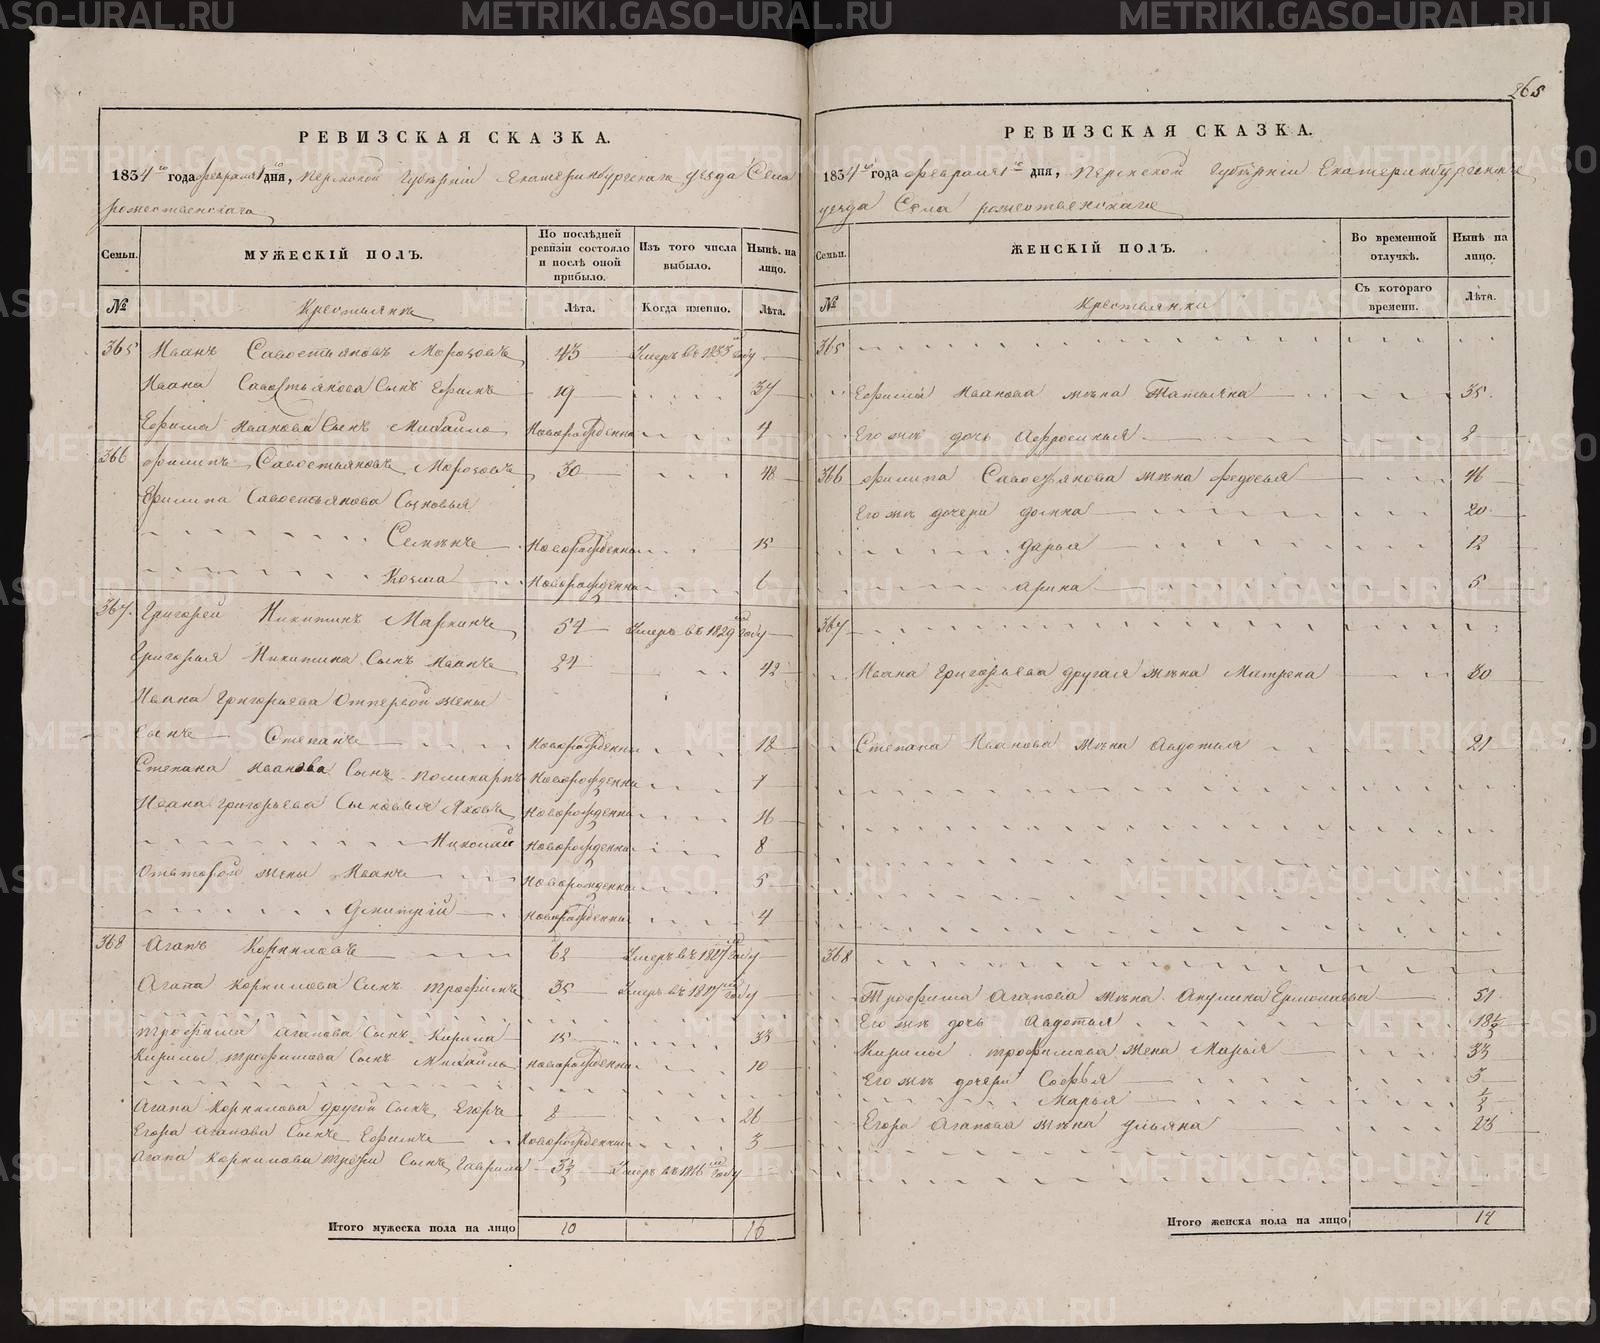 265
РЕВИЗСКАЯ СКАЗКА.
1834го года февраля 1го дня, Пермской Губернiи Екатеринбургскаго уезда Села
рожественскаго
Семьи.
МУЖЕСКIЙ ПОЛЪ.
По последней ревизiи состояло и после оной прибыло.
Изъ того числа выбыло.
Ныне на лицо.
№
Крестьяне
Лета.
Когда именно.
Лета.
365 Иванъ Савостьяновъ Морозовъ 43 Умеръ въ 1833м году
Ивана Савостьянова Сынъ Ефимъ 19 37
Ефима Иванова Сынъ Михайло Новорожденна 4
366 Филипъ Савостьяновъ Морозовъ 30 48
Филипа Савостьянова Сыновья
Семенъ Новорожденна 15
Козма Новорожденна 6
367 Григорей Никитинъ Маркинъ 54 Умеръ въ 1829м году
Григорья Никитина Сынъ Иванъ 24 42
Ивана Григорьева Отпервой жены
Сынъ Степанъ Новорожденна 18
Степана Иванова Сынъ поликарпъ Новорожденна 1
Ивана Григорьева Сыновья Яковъ Новорожденна 16
Николай Новорожденна 8
Отвторой жены Иванъ Новорожденна 5
Дмитрiй Новорожденна 4
368 Агапъ Корниловъ 62 Умеръ въ 1827м году
Агапа Корнилова Сынъ трофимъ 35 Умеръ въ 1817м году
трофима Агапова Сынъ Кирила 15 33
Кирилы трофимова Сынъ Михайло Новорожденна 10
Агапа Корнилова другой Сынъ Егоръ 8 26
Егора Агапова Сынъ Ефимъ Новорожденна 3
Агапа Корнилова третiй Сынъ Гаврила Умеръ въ 1816м году
Итого мужеска пола на лицо 10 16
РЕВИЗСКАЯ СКАЗКА.
1834го года февраля 1го дня, Пермской Губернiи Екатеринбургскаго
уезда Села рожественскаго
Семьи.
ЖЕНСКIЙ ПОЛЪ.
Во временной отлучке.
Ныне на лицо.
№
Крестьянки
Съ котораго времени.
Лета.
365
Ефима Иванова жена Татьяна 35
Его же дочь Афросинья 2
366 Филипа Савостьянова жена федосья 46
Его же дочери домна 20
дарья 12
арина 5
367
Ивана Григорьева другая жена Матрена 30
Степана Иванова жена Авдотья 21
368
Трофима Агапова жена Акулина Ермолаева 51
Его же дочь Авдотья 18½
Кирилы трофимова жена Марья 33
Его же дочери Софья 3
Марья ½
Егора Агапова жена ульяна 23
Итого женска пола на лицо 14
METRIKI.GASO-URAL.RU